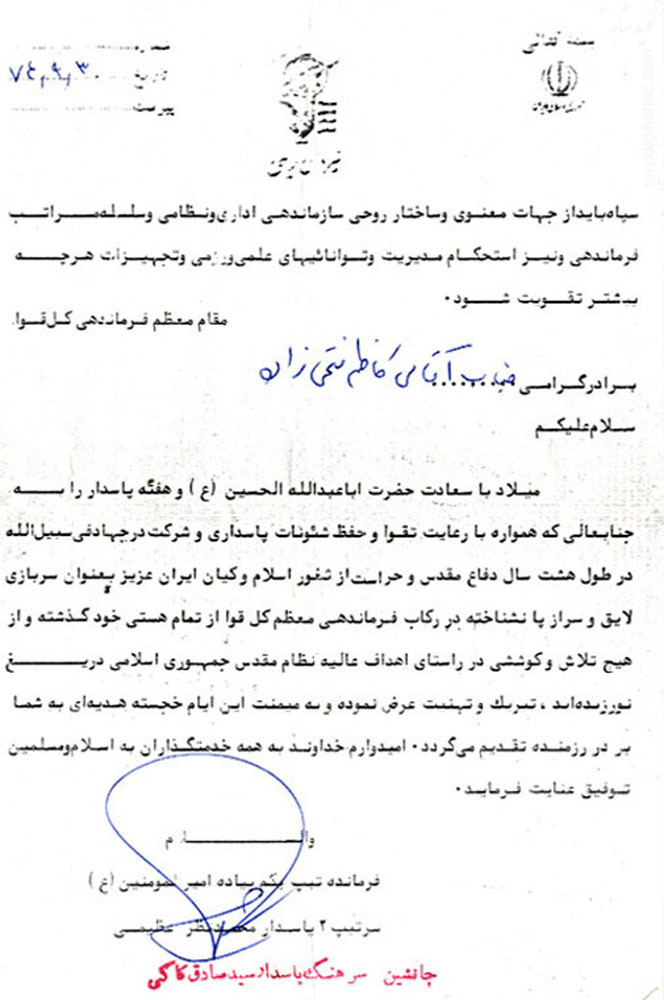 بسمه تعالی
جمهوری اسلامی ایران
نیروی زمینی
شماره
تاریخ ۷٤٫۹٫۳۰
پیوست
سپاه باید از جهات معنوی و ساختار روحی سازماندهی اداری و نظامی و سلسله مراتب
فرماندهی و نیز استحکام مدیریت و توانائیهای علمی ورزمی و تجهیزات هرچه
بیشتر تقویت شود۰
مقام معظم فرماندهی کل قوا
برادر گرامی جناب آقای کاظم فتحی زاده
سلام علیکم
میلاد با سعادت حضرت اباعبدالله الحسین (ع) و هفته پاسدار را به
جنابعالی که همواره با رعایت تقوا و حفظ شئونات پاسداری و شرکت در جهاد فی سبیل الله
در طول هشت سال دفاع مقدس و حراست از ثغور اسلام و کیان ایران عزیز بعنوان سربازی
لایق و سراز پا نشناخته در رکاب فرماندهی معظم کل قوا از تمام هستی خود گذشته و از
هیچ تلاش و کوششی در راستای اهداف عالیه نظام مقدس جمهوری اسلامی دریغ
نورزیده‌اید ، تبریك و تهنیت عرض نموده و به میمنت این ایام خجسته هدیه‌ای به شما
برادر رزمنده تقدیم می‌گردد۰ امیدوارم خداوند به همه خدمتگذاران به اسلام و مسلمین
توفیق عنایت فرماید۰
والسلام
فرمانده تیپ یکم پیاده امیرالمومنین (ع)
سرتیپ ۲ پاسدار محمدنظر عظیمی
جانشین سرهنگ پاسدار سید صادق کاکی
navideshahed.com